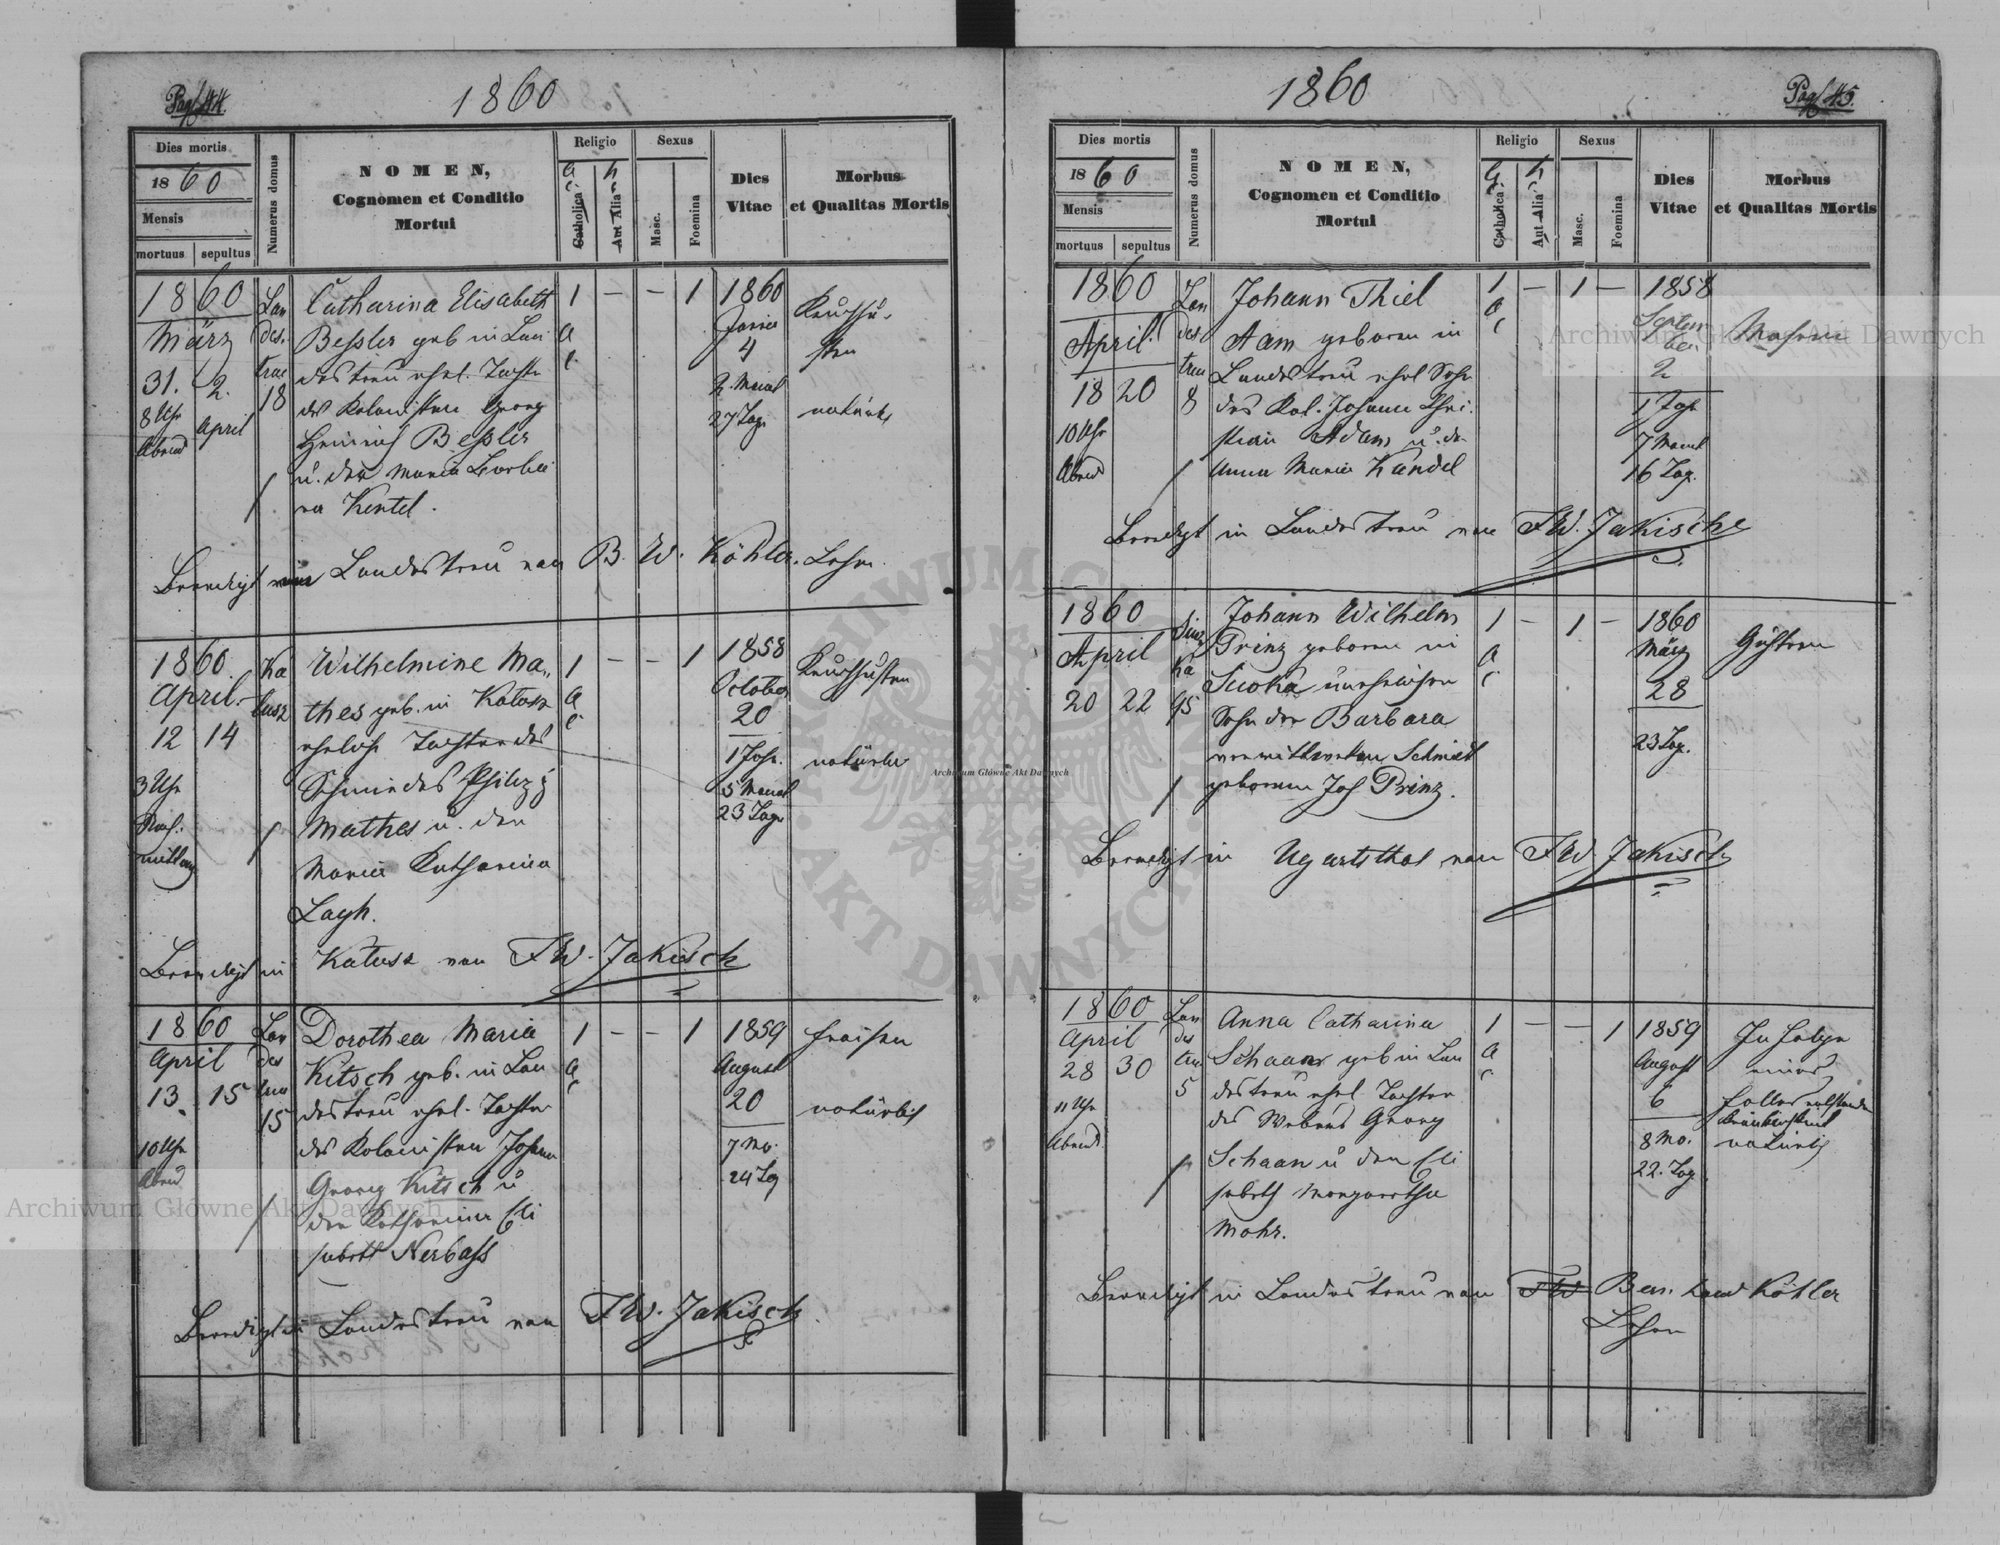 Pag 44.
1860
Dies mortis
1860
Mensis
mortuus sepultus
Numerus domus
NOMEN,
Cognomen et Conditio
Mortui
Religio
Catholica
Aut Alia
Sexus
Masc.
Foemina
Dies
Vitae
Morbus
et Qualitas Mortis
1860
März
31. 2.
8 Uhr April
Abend
Lan
des.
treu
18
Catharina Elisabeth
Beßler geb in Lan
destreu ehel. Tochter
des Kolonisten Georg
Heinrich Beßler
u. der Maria Barba
ra Kentel.
1 — — 1
a
c.
1860
Janer
4
2. Monat
27 Tage
Keuchhu-
sten
natürl.
Beerdigt in Landestreu von B. W. Köhler. Lehrer.
1860.
April.
12 14
3 Uhr
Nach.
mittag
Ka
lusz
Wilhelmine Ma„
thes geb. in Kalusz
eheliche Tochter des
Schmiedes Philipp
Mathes u. der
Maria Katharina
Layh.
1 — — 1
a
c.
1858
October
20
1 Jahr.
5 Monat
23 Tage
Keuchhusten
natürlich
Beerdigt in Kalusz von FW. Jakisch
1860
April
13. 15
10 Uhr
Abend
Lan
des
treu
15
Dorothea Maria
Kitsch geb. in Lan
destreu ehel. Tochter
des Kolonisten Johann
Georg Kitsch u
der Katharina Eli
sabeth Nerbaß
1 — — 1
a
c
1859
August
20
7 Mo.
24 Tag
Fraisen
natürlich
Beerdigt in Landestreu von FW. Jakisch
Pag 45.
1860
Dies mortis
1860
Mensis
mortuus sepultus
Numerus domus
NOMEN,
Cognomen et Conditio
Mortui
Religio
Catholica
Aut Alia
Sexus
Masc.
Foemina
Dies
Vitae
Morbus
et Qualitas Mortis
1860
April.
18 20
10 Uhr
Abend
Lan
des
treu
8
Johann Thiel
Aam geboren in
Landestreu ehel Sohn
des Kol. Johann Chri.
stian Adam u. der
Anna Maria Kandel
1 — 1 —
a
c
1858
Septem
ber
2
1 Jahr
7 Monat
16 Tag.
Masern
Beerdigt in Landestreu von FW. Jakisch
1860
April
20 22
Siwz
ka
95
Johann Wilhelm
Prinz geboren in
unehelicher
Sohn der Barbara
verwittweten Schmidt
geborene Joh Prinz.
1 — 1 —
a
c
1860
März
28
23 Tag.
Beerdigt in Ugartsthal von FW Jakisch
1860
April
28 30
11 Uhr
Abends
Lan
des
treu
5
Anna Catharina
Schaan geb in Lan
destreu ehel. Tochter
des Webers Georg
Schaan u der Eli
sabeth Margaretha
Mohr.
1 — — 1
a
c
1859
August
6
8 Mo.
22. Tag
In Folge
eines
Falles
natürlich
Beerdigt in Landestreu von FW Bernhard Köhler
Lehrer
Archiwum Główne Akt Dawnych
Archiwum Główne Akt Dawnych
Archiwum Główne Akt Dawnych
ARCHIWUM GŁÓWNE AKT DAWNYCH